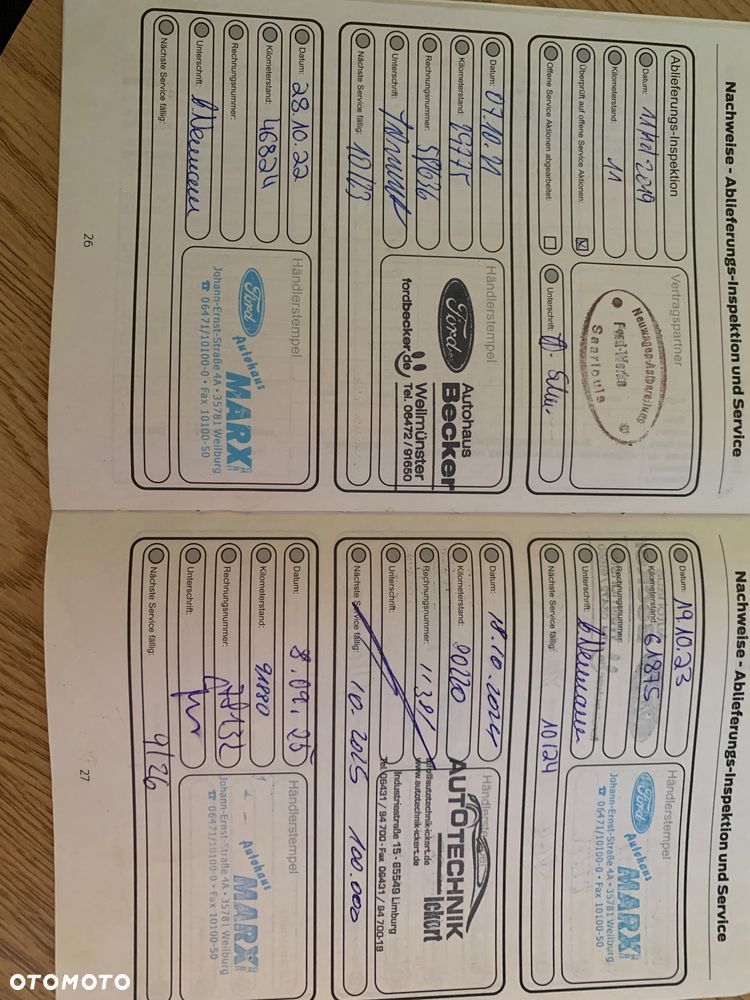 Nachweise - Ablieferungs-Inspektion und Service
Ablieferungs-Inspektion
Datum: 2019
Kilometerstand: 11
Überprüft auf offene Service Aktionen:
Offene Service Aktionen abgearbeitet:
Vertragspartner
Neuwagen-Aufbereitung
Ford-Werke
Saarlouis
Unterschrift:
Datum: 07.10.21
Kilometerstand: 29775
Rechnungsnummer:
Unterschrift:
Nächste Service fällig: 10/23
Händlerstempel
Ford
Autohaus
Becker
fordbecker.de
Weilmünster
Tel. 06472 / 91650
Datum: 28.10.22
Kilometerstand: 46824
Rechnungsnummer:
Unterschrift: Neumann
Nächste Service fällig:
Händlerstempel
Ford
Autohaus
MARX
Johann-Ernst-Straße 4A • 35781 Weilburg
☎ 06471/10100-0 • Fax 10100-50
26
Nachweise - Ablieferungs-Inspektion und Service
Datum: 19.10.23
Kilometerstand: 61875
Rechnungsnummer:
Unterschrift: Neumann
Nächste Service fällig: 10/24
Händlerstempel
Ford
Autohaus
MARX
Johann-Ernst-Straße 4A • 35781 Weilburg
☎ 06471/10100-0 • Fax 10100-50
Datum: 18.10.2024
Kilometerstand: 80220
Rechnungsnummer:
Unterschrift:
Nächste Service fällig: 10.2025 100.000
Händlerstempel
AUTOTECHNIK
Ickert
info@autotechnik-ickert.de
www.autotechnik-ickert.de
Industriestraße 15 - 65549 Limburg
Tel. 06431 / 94 700 - Fax 06431 / 94 700-19
Datum: 8.09.25
Kilometerstand: 91880
Rechnungsnummer:
Unterschrift:
Nächste Service fällig: 9/26
Händlerstempel
Autohaus
MARX
Johann-Ernst-Straße 4A • 35781 Weilburg
☎ 06471/10100-0 • Fax 10100-50
27
OTOMOTO